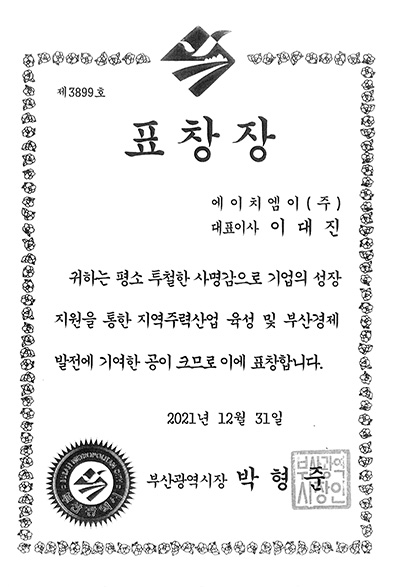 제3899호
표창장
에이치엠이(주)
대표이사 이대진
귀하는 평소 투철한 사명감으로 기업의 성장
지원을 통한 지역주력산업 육성 및 부산경제
발전에 기여한 공이 크므로 이에 표창합니다.
2021년 12월 31일
부산광역시장 박형준
부산광역
시장인